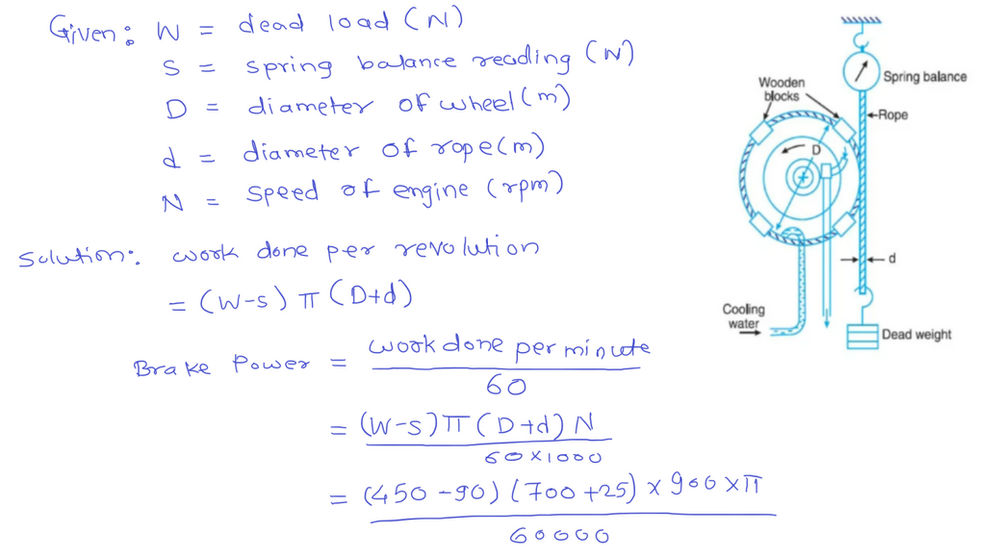 Given: W = dead load (N)
S = spring balance reading (N)
D = diameter of wheel (m)
d = diameter of rope (m)
N = speed of engine (rpm)
Solution: work done per revolution
= (W-s) π (D+d)
Brake Power = work done per minute
60
= (W-s) π (D+d) N
60×1000
= (450-90) (700+25) × 900 × π
60000
Spring balance
Wooden
blocks
Rope
D
d
Cooling
water
Dead weight